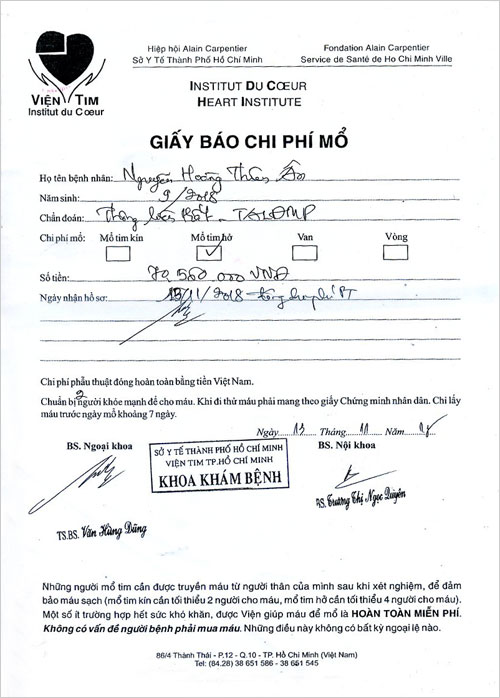 Hiệp hội Alain Carpentier
Sở Y Tế Thành Phố Hồ Chí Minh
Fondation Alain Carpentier
Service de Santé de Ho Chi Minh Ville
VIỆN TIM
Institut du Cœur
INSTITUT DU CŒUR
HEART INSTITUTE
GIẤY BÁO CHI PHÍ MỔ
Họ tên bệnh nhân: Nguyễn Hoàng Thiên Ân
Năm sinh: 9/2018
Chẩn đoán: Thông liên thất - TALĐMP
Chi phí mổ: Mổ tim kín Mổ tim hở Van Vòng
Số tiền: 72 560 000 VNĐ
Ngày nhận hồ sơ: 13/11/2018
Chi phí phẫu thuật đóng hoàn toàn bằng tiền Việt Nam.
Chuẩn bị 2 người khỏe mạnh để cho máu. Khi đi thử máu phải mang theo giấy Chứng minh nhân dân. Chỉ lấy
máu trước ngày mổ khoảng 7 ngày.
Ngày 13 Tháng 11 Năm 18
BS. Ngoại khoa
SỞ Y TẾ THÀNH PHỐ HỒ CHÍ MINH
VIỆN TIM TP.HỒ CHÍ MINH
KHOA KHÁM BỆNH
BS. Nội khoa
TS.BS. Văn Hùng Dũng
BS. Trương Thị Ngọc Quyên
Những người mổ tim cần được truyền máu từ người thân của mình sau khi xét nghiệm, để đảm
bảo máu sạch (mổ tim kín cần tối thiểu 2 người cho máu, mổ tim hở cần tối thiểu 4 người cho máu).
Một số ít trường hợp hết sức khó khăn, được Viện giúp máu để mổ là HOÀN TOÀN MIỄN PHÍ.
Không có vấn đề người bệnh phải mua máu. Những điều này không có bất kỳ ngoại lệ nào.
86/4 Thành Thái - P.12 - Q.10 - TP. Hồ Chí Minh (Việt Nam)
Tel: (84.28) 38 651 586 - 38 651 545